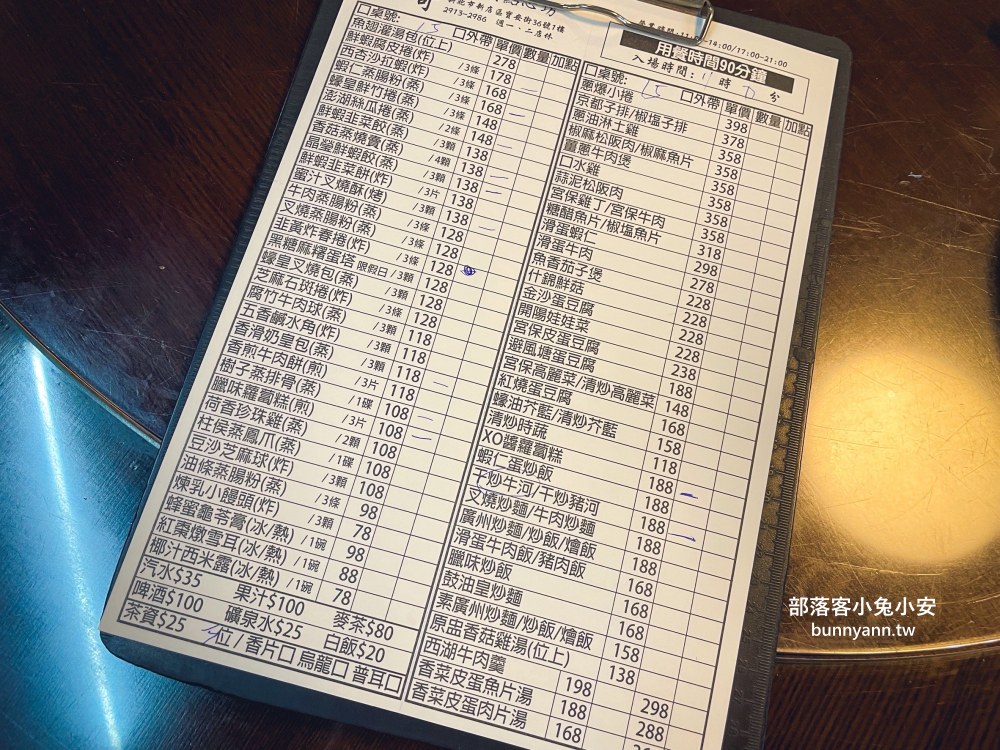 新北市新店區寶安街36號1樓
2913-2986 週一、二店休
□桌號: 15 □外帶 單價 數量 加點
魚翅灌湯包(位上) 278
鮮蝦腐皮捲(炸) /3條 178
西杏沙拉蝦(炸) /3條 168
蝦仁蒸腸粉(蒸) /3條 168
蠔皇鮮竹捲(蒸) /3條 148
澎湖絲瓜捲(蒸) /2條 148
鮮蝦韭菜餃(蒸) /3顆 138
香菇蒸燒賣(蒸) /4顆 138
晶瑩鮮蝦餃(蒸) /3顆 138
鮮蝦韭菜餅(炸) /3片 138
蜜汁叉燒酥(烤) /3顆 128
牛肉蒸腸粉(蒸) /3條 128
叉燒蒸腸粉(蒸) /3條 128
韭黃炸春捲(炸) /3條 128
黑糖麻糬蛋塔 限假日 /3顆 128
蠔皇叉燒包(蒸) /3顆 128
芝麻石斑捲(炸) /3條 118
腐竹牛肉球(蒸) /3顆 118
五香鹹水角(炸) /3顆 118
香滑奶皇包(蒸) /3顆 118
香煎牛肉餅(煎) /3片 108
樹子蒸排骨(蒸) /1碟 108
臘味蘿蔔糕(煎) /3片 108
荷香珍珠雞(蒸) /2顆 108
柱侯蒸鳳爪(蒸) /1碟 98
豆沙芝麻球(炸) 78
油條蒸腸粉(蒸) /3條 98
煉乳小饅頭(炸) /3顆 88
蜂蜜龜苓膏(冰/熱) /1碗 78
紅棗燉雪耳(冰/熱) /1碗
椰汁西米露(冰/熱) /1碗
汽水$35 果汁$100 麥茶$80
啤酒$100 礦泉水$25 白飯$20
茶資$25 位/香片□ 烏龍□ 普耳□
14:00/17:00-21:00
用餐時間90分鐘
入場時間: 時 分
□桌號: 15 □外帶 單價 數量 加點
蔥爆小捲 398
京都子排/椒塩子排 378
蔥油淋土雞 358
椒麻松阪肉/椒麻魚片 358
薑蔥牛肉煲 358
口水雞 358
蒜泥松阪肉 358
宮保雞丁/宮保牛肉 318
糖醋魚片/椒塩魚片 298
滑蛋蝦仁 278
滑蛋牛肉 228
魚香茄子煲 228
什錦鮮菇 228
金沙蛋豆腐 238
開陽娃娃菜 188
宮保皮蛋豆腐 148
避風塘蛋豆腐 168
宮保高麗菜/清炒高麗菜 158
紅燒蛋豆腐 118
蠔油芥藍/清炒芥藍 188
清炒時蔬 188
XO醬蘿蔔糕 188
蝦仁蛋炒飯 188
干炒牛河/干炒豬河 168
叉燒炒麵/牛肉炒麵 168
廣州炒麵/炒飯/燴飯 168
滑蛋牛肉飯/豬肉飯 158
臘味炒飯 138
鼓油皇炒麵
素廣州炒麵/炒飯/燴飯
原盅香菇雞湯(位上)
西湖牛肉羹 198 298
香菜皮蛋魚片湯 188 288
香菜皮蛋肉片湯 168
部落客小兔小安
bunnyann.tw